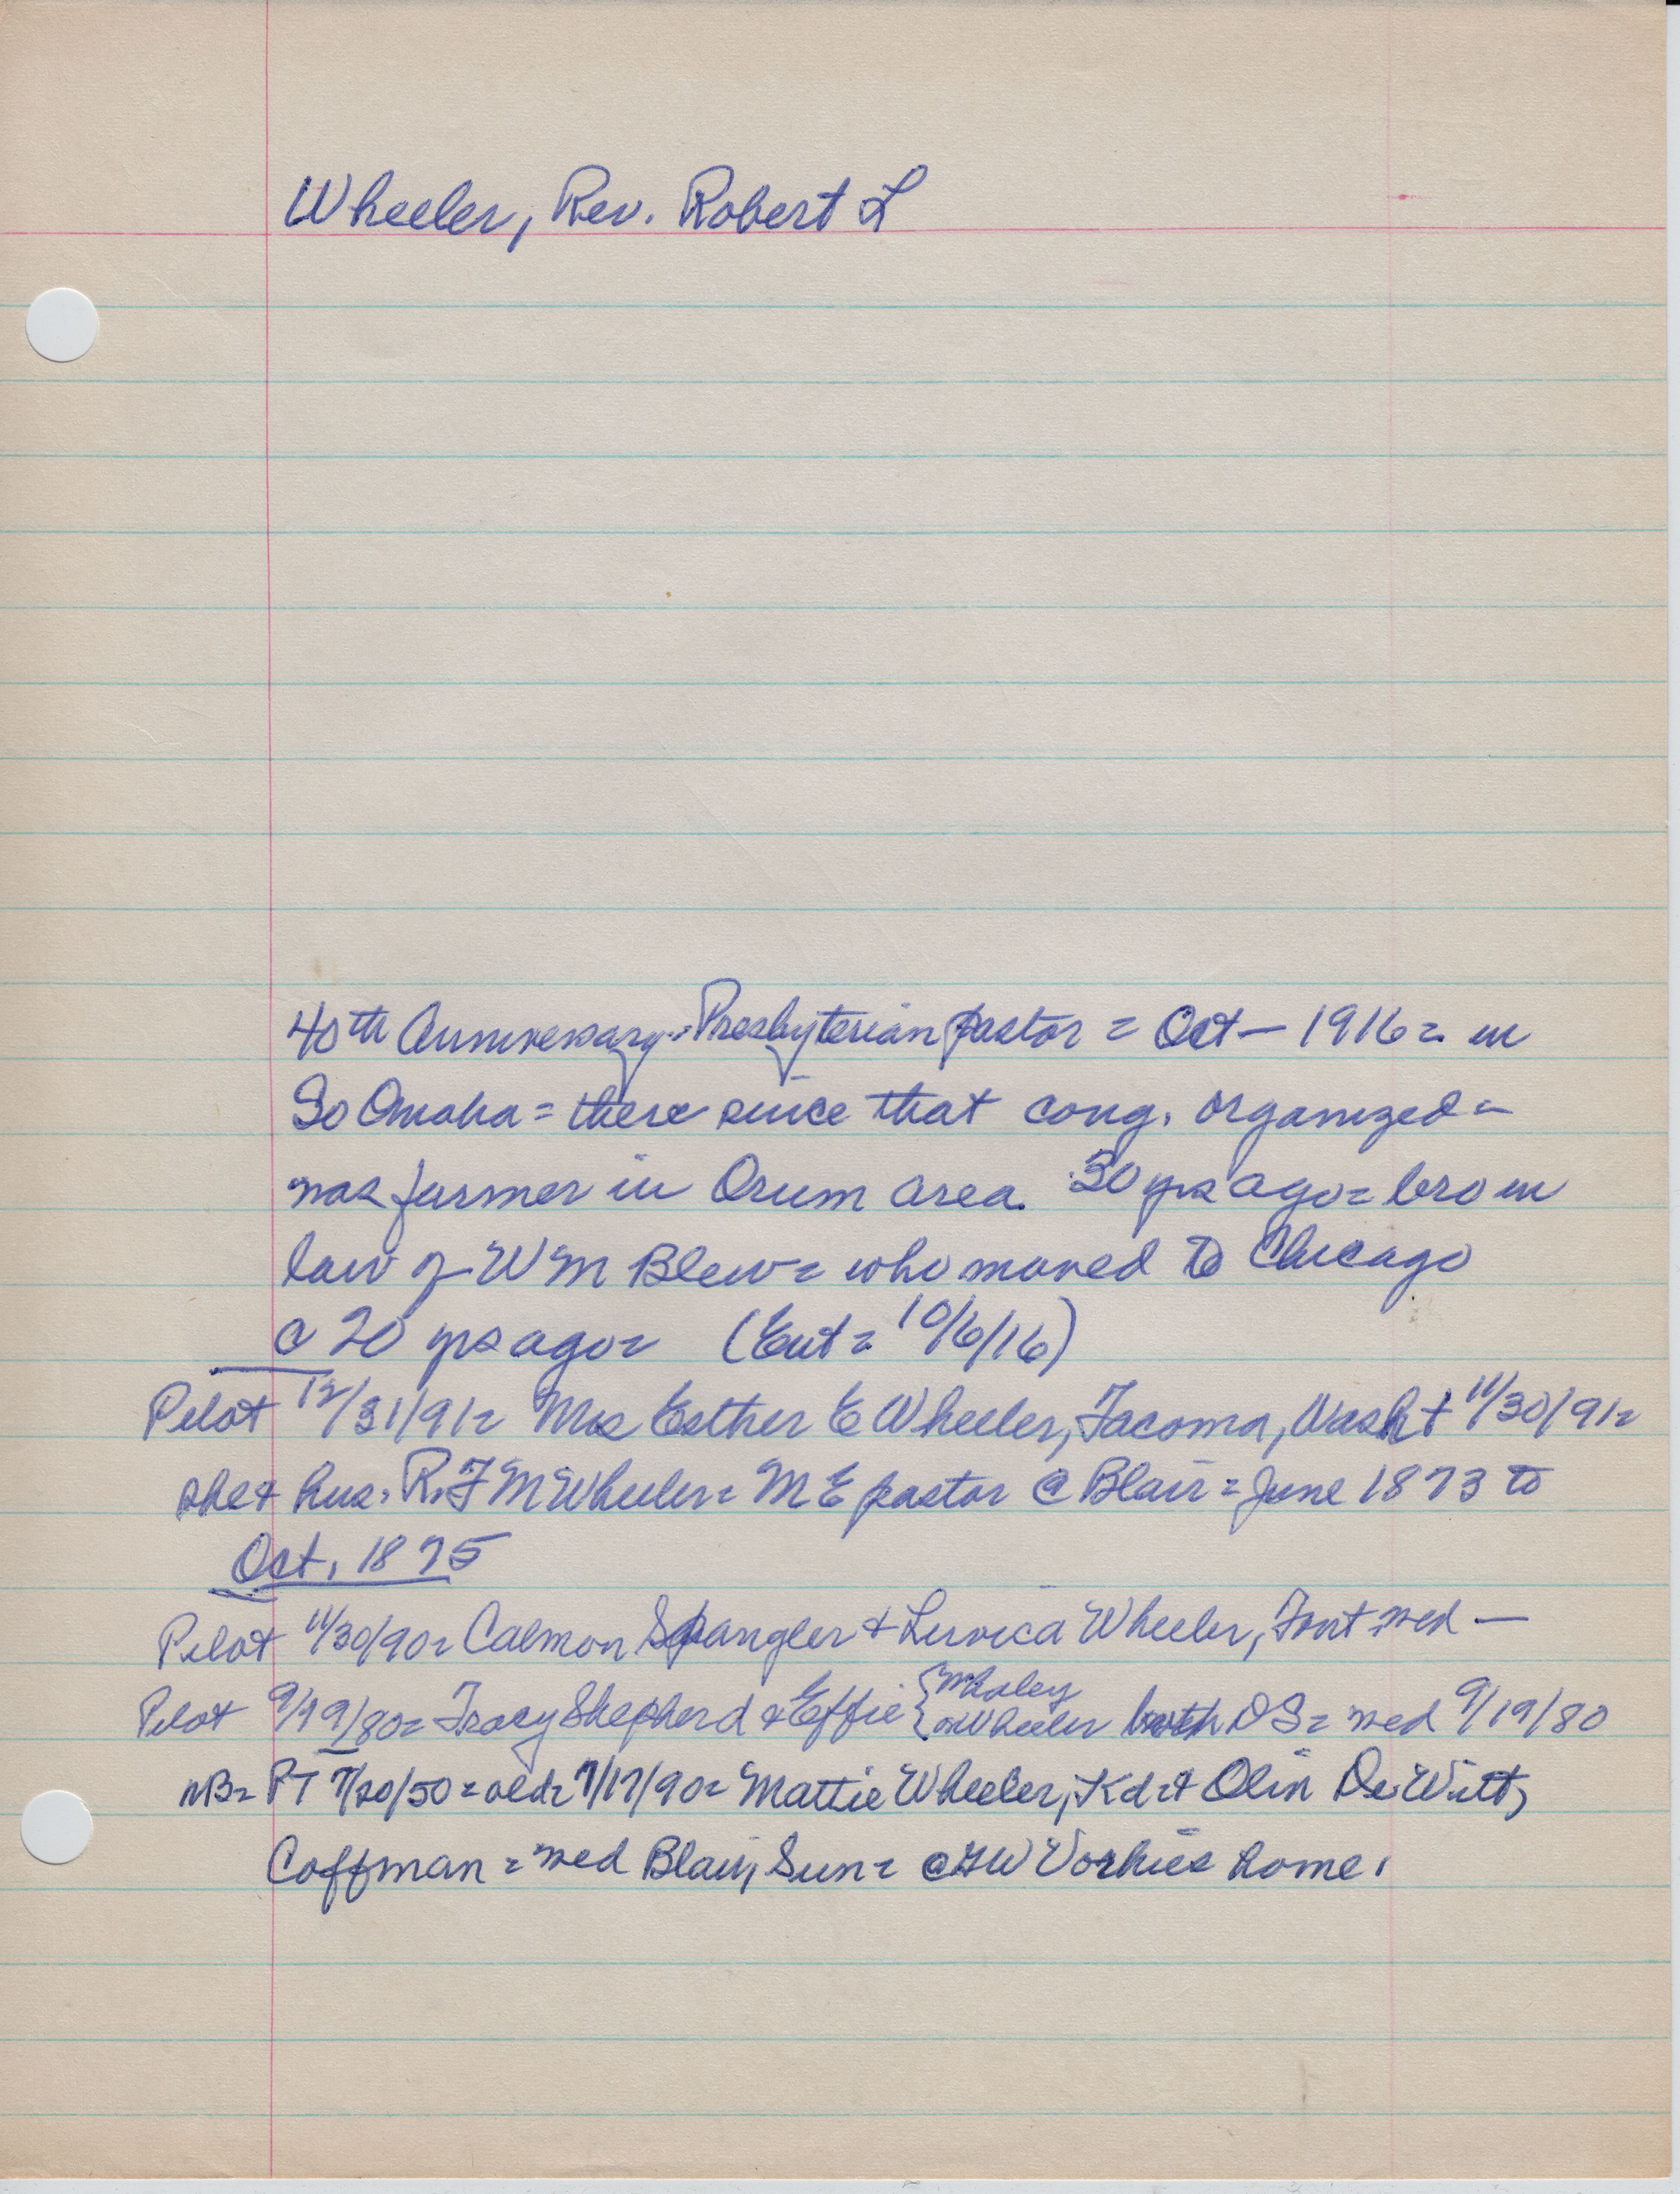 Wheeler, Rev. Robert L
40th Anniversary = Presbyterian pastor = Oct – 1916 = in
So Omaha = there since that cong. organized =
was farmer in Orum area. 30 yrs ago = bro in
law of W M Blew = who moved to Chicago
c 20 yrs ago = (Ent = 10/6/16)
Pilot 12/31/91 = Mrs Esther E Wheeler, Tacoma, Wash + 11/30/91 =
she + hus. R. F M Wheeler = M E pastor @ Blair = June 1873 to
Oct, 1875
Pilot 11/30/90 = Calmon Spangler + Luvica Wheeler, Font wed —
Pilot 9/19/80 = Tracy Shepherd + Effie { Whaley
or Wheeler both DS = wed 9/19/80
NB = PT 7/20/50 = old = 7/17/90 = Mattie Wheeler, Kd = + Olin DeWitt,
Coffman = wed Blair, Sun = @ GW Vorhies home.